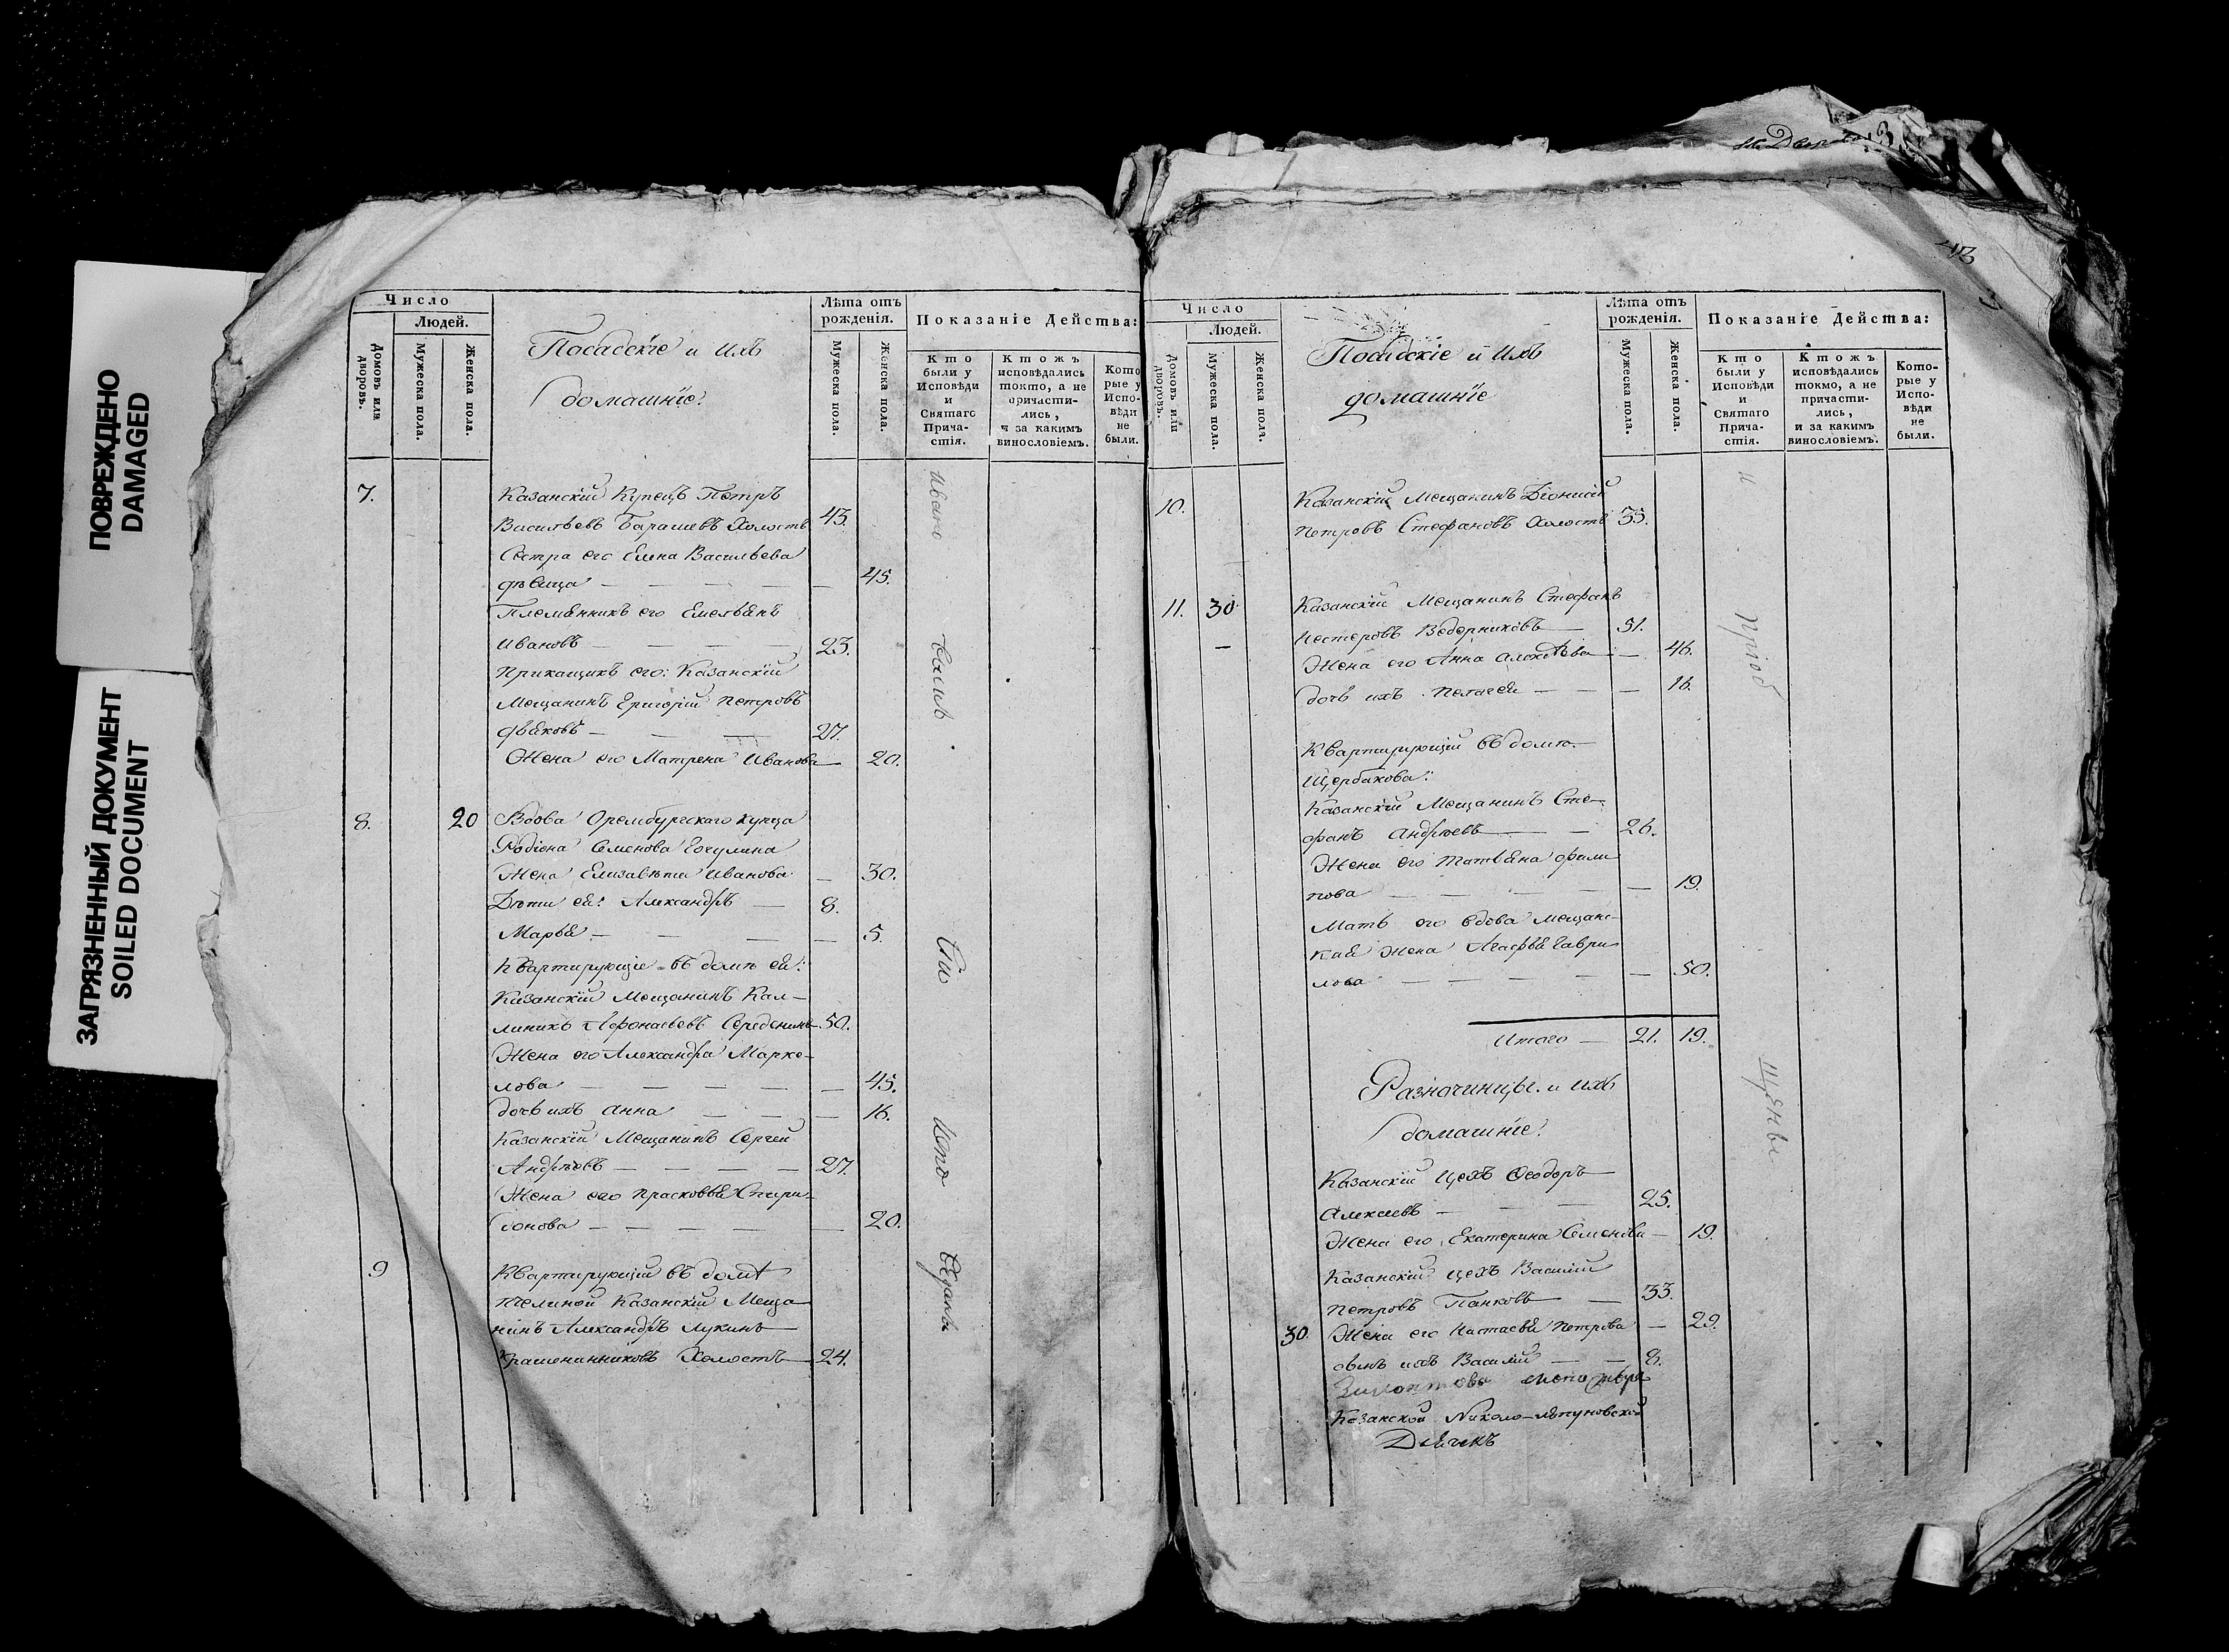 ПОВРЕЖДЕНО
DAMAGED
ЗАГРЯЗНЕННЫЙ ДОКУМЕНТ
SOILED DOCUMENT
Число
Людей.
Домовъ или дворовъ.
Мужеска пола.
Женска пола.
Посадскіе и ихъ
домашніе.
Лѣта отъ
рожденія.
Мужеска пола.
Женска пола.
Показаніе Действа:
Кто
были у
Исповѣди
и
Святаго
Прича-
стія.
Ктожъ
исповѣдались
токмо, а не
причасти-
лись,
и за какимъ
винословіемъ.
Кото
рые у
Испо-
вѣди
не
были.
7. Казанскій Купецъ Петръ
Васильевъ Барашевъ Холостъ 43.
Сестра его Елена Васильева
дѣвица — — — — 45.
Племянникъ его Емельянъ
Ивановъ — — — 23.
Прикащикъ его: Казанскій
Мещанинъ Григорій Петровъ
— — 27.
Жена его Матрена Иванова — 20.
8. 20 Вдова Оренбургскаго купца
Родіона Семенова
Жена Елизавета Иванова — 30.
Дѣти ея: Александръ — 8.
Марья — — — 5.
Квартирующіе въ домѣ ея:
Казанскій Мещанинъ Кал-
линикъ Афонасьевъ Середенинъ 50.
Жена его Александра Марке-
лова — — — — — 45.
дочь ихъ Анна — — — 16.
Казанскій Мещанинъ Сергей
Андреевъ — — — — 27.
Жена его Прасковья Спири-
донова — — — — — 20.
9 Квартирующій въ домѣ
Казанскій Меща
нинъ Александръ Лукинъ
Крашенинниковъ Холостъ — 24.
Число
Людей.
Домовъ или дворовъ.
Мужеска пола.
Женска пола.
Посадскіе и ихъ
домашніе
Лѣта отъ
рожденія.
Мужеска пола.
Женска пола.
Показаніе Действа:
Кто
были у
Исповѣди
и
Святаго
Прича-
стія.
Ктожъ
исповѣдались
токмо, а не
причасти-
лись,
и за какимъ
винословіемъ.
Кото-
рые у
Испо-
вѣди
не
были.
10. Казанскій Мещанинъ Діонисій
Петровъ Стефановъ Холостъ 35.
11. 30 Казанскій Мещанинъ Стефанъ
Нестеровъ Ведерниковъ — 51.
Жена его Анна Алексѣева — 46.
дочь ихъ Пелагея — — — 16.
Квартирующій въ домѣ
Щербакова:
Казанскій Мещанинъ Сте-
фанъ Андреевъ — — 26.
Жена его Татьяна Филип
пова — — — — — 19.
Мать его вдова мещанс-
кая жена Агафья Гаври
лова — — — — — 50.
Итого — 21. 19.
Разночинцы и ихъ
домашніе.
Казанскій Цехъ Ѳеодоръ
Алексеевъ — — — 25.
Жена его Екатерина Семенова — 19.
Казанскій цехъ Василій
Петровъ Панковъ — 33.
30. Жена его Настасья Петрова — 29.
сынъ ихъ Василій — — 8.
Казанской Николо-